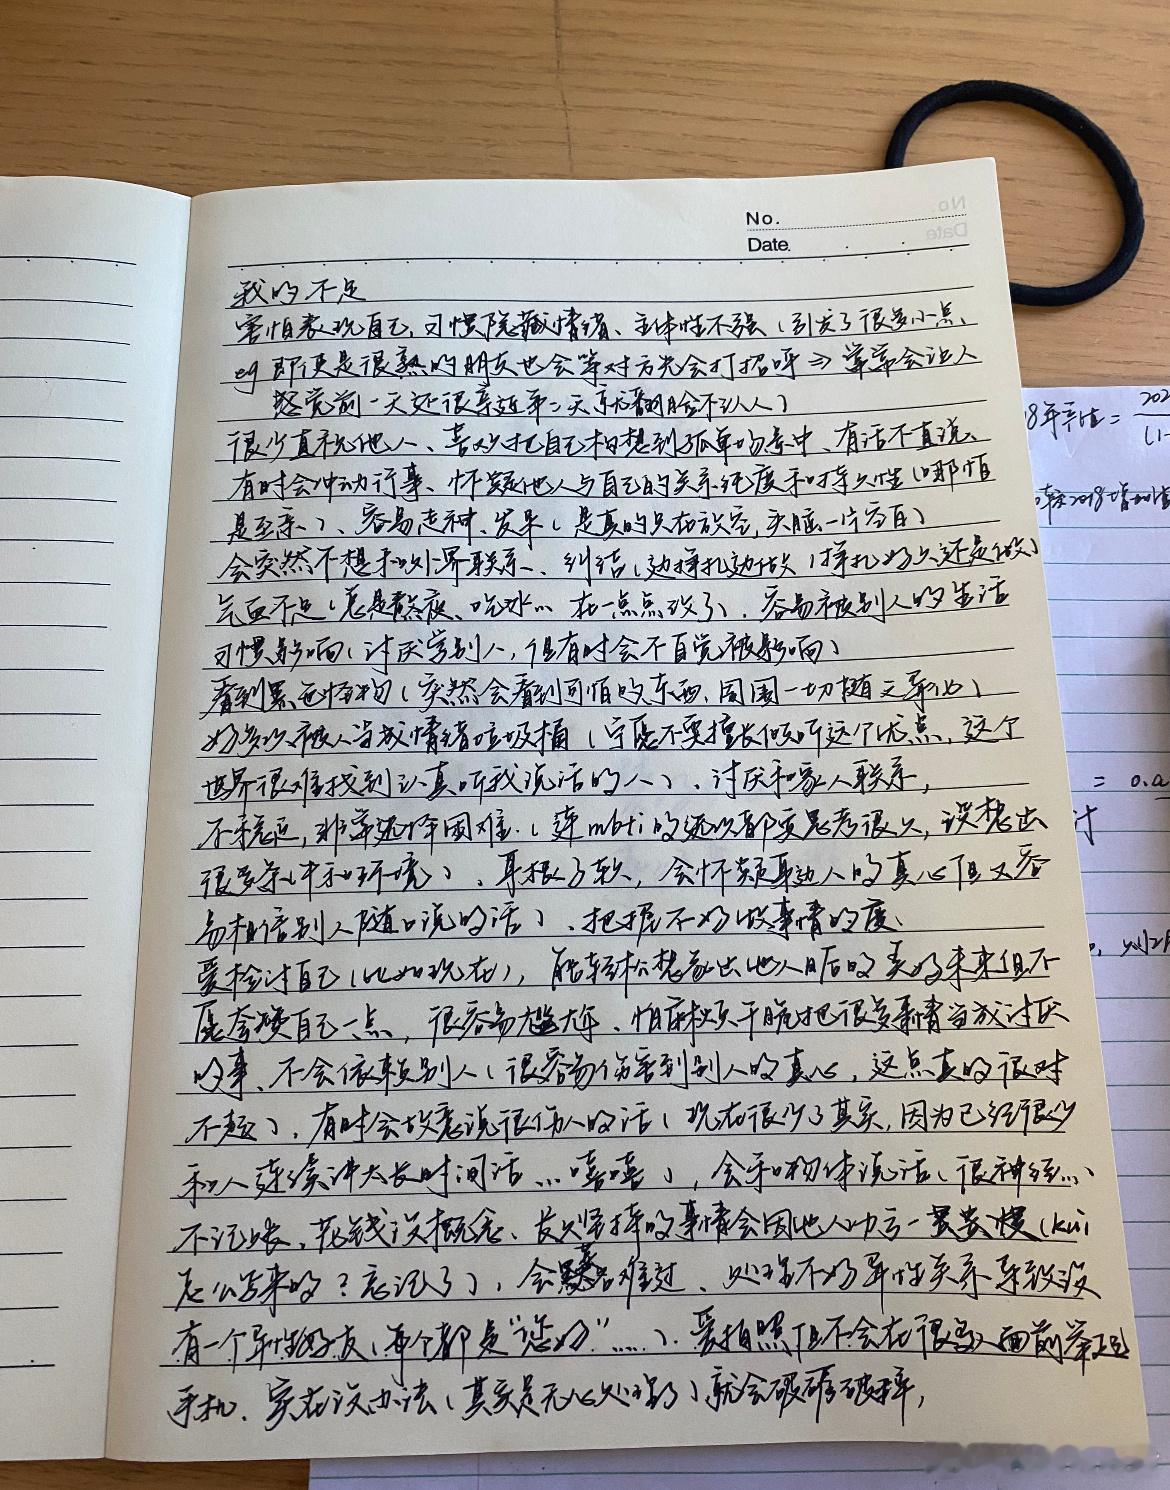 No.
Date.
我的不足
害怕表现自己、习惯隐藏情绪、主体性不强（引发了很多小点、
eg 即便是很熟的朋友也会等对方先会打招呼⇒常常会让人
感觉前一天还很亲近第二天就翻脸不认人）
很少直视他人、喜欢把自己构想到孤单场景中、有话不直说、
有时会冲动行事、怀疑他人与自己的关系纯度和持久性（哪怕
是至亲）、容易走神、发呆（是真的只在放空，头脑一片空白）
会突然不想和外界联系、纠结（边挣扎边做（挣扎好久还是做）
气血不足（总是熬夜、吃冰… 在一点点改了）、容易被别人的生活
习惯影响（讨厌学别人，但有时会不自觉被影响）
看到黑色怪物（突然会看到可怕的东西，周围一切随之异化）
好多次被人当成情绪垃圾桶（宁愿不要擅长倾听这个优点，这个
世界很难找到认真听我说话的人）、讨厌和家人联系，
不稳定，非常选择困难.（连mbti的选项都要思考很久，设想出
很多条件和环境）、耳根子软，会怀疑身边人的真心但又容
易相信别人随口说的话）、把握不好做事情的度、
爱检讨自己（比如现在），能轻松想象出他人日后的美好未来但不
愿夸奖自己一点，很容易尴尬、怕麻烦干脆把很多事情当成讨厌
的事、不会依赖别人（很容易伤害到别人的真心，这点真的很对
不起）、有时会故意说很伤人的话（现在很少了其实，因为已经很少
和人连续讲太长时间话…嘻嘻），会和物体说话（很神经…、
不记账，花钱没概念、长久坚持的事情会因他人功亏一篑（kui
怎么写来的？忘记了），会难过、处理不好异性关系导致没
有一个异性好友（每个都是“您好”……）、爱拍照但不会在很多人面前举起
手机、实在没办法（其实是无心处理了）就会破罐破摔，
18年产值=
= 0.